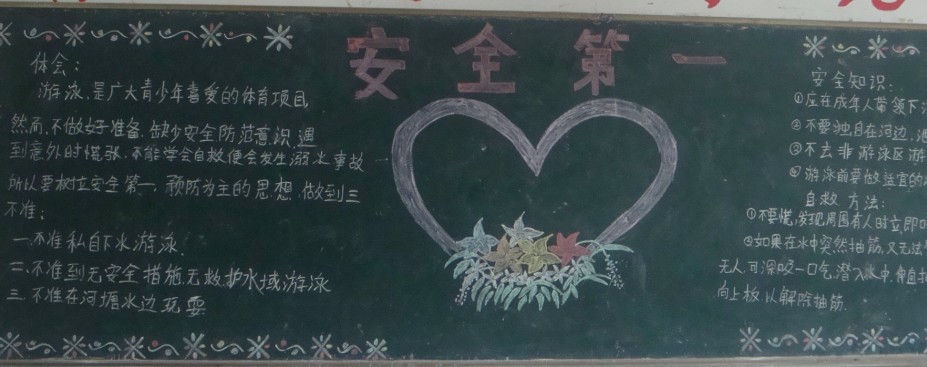 安全第一
体会：
游泳，是广大青少年喜爱的体育项目，
然而，不做好准备，缺少安全防范意识，遇
到意外时慌张，不能学会自救便会发生溺水事故
所以要树立安全第一，预防为主的思想，做到三
不准：
一.不准私自下水游泳.
二.不准到无安全措施,无救护水域游泳
三.不准在河塘水边玩耍
安全知识：
①应在成年人带领下
②不要独自在河边、
③不去非游泳区游
④游泳前要做适宜的
自救方法：
①不要慌,发现周围有人时立即
②如果在水中突然抽筋,又无法
无人,可深吸一口气,潜入水中,伸直
向上板,以解除抽筋.